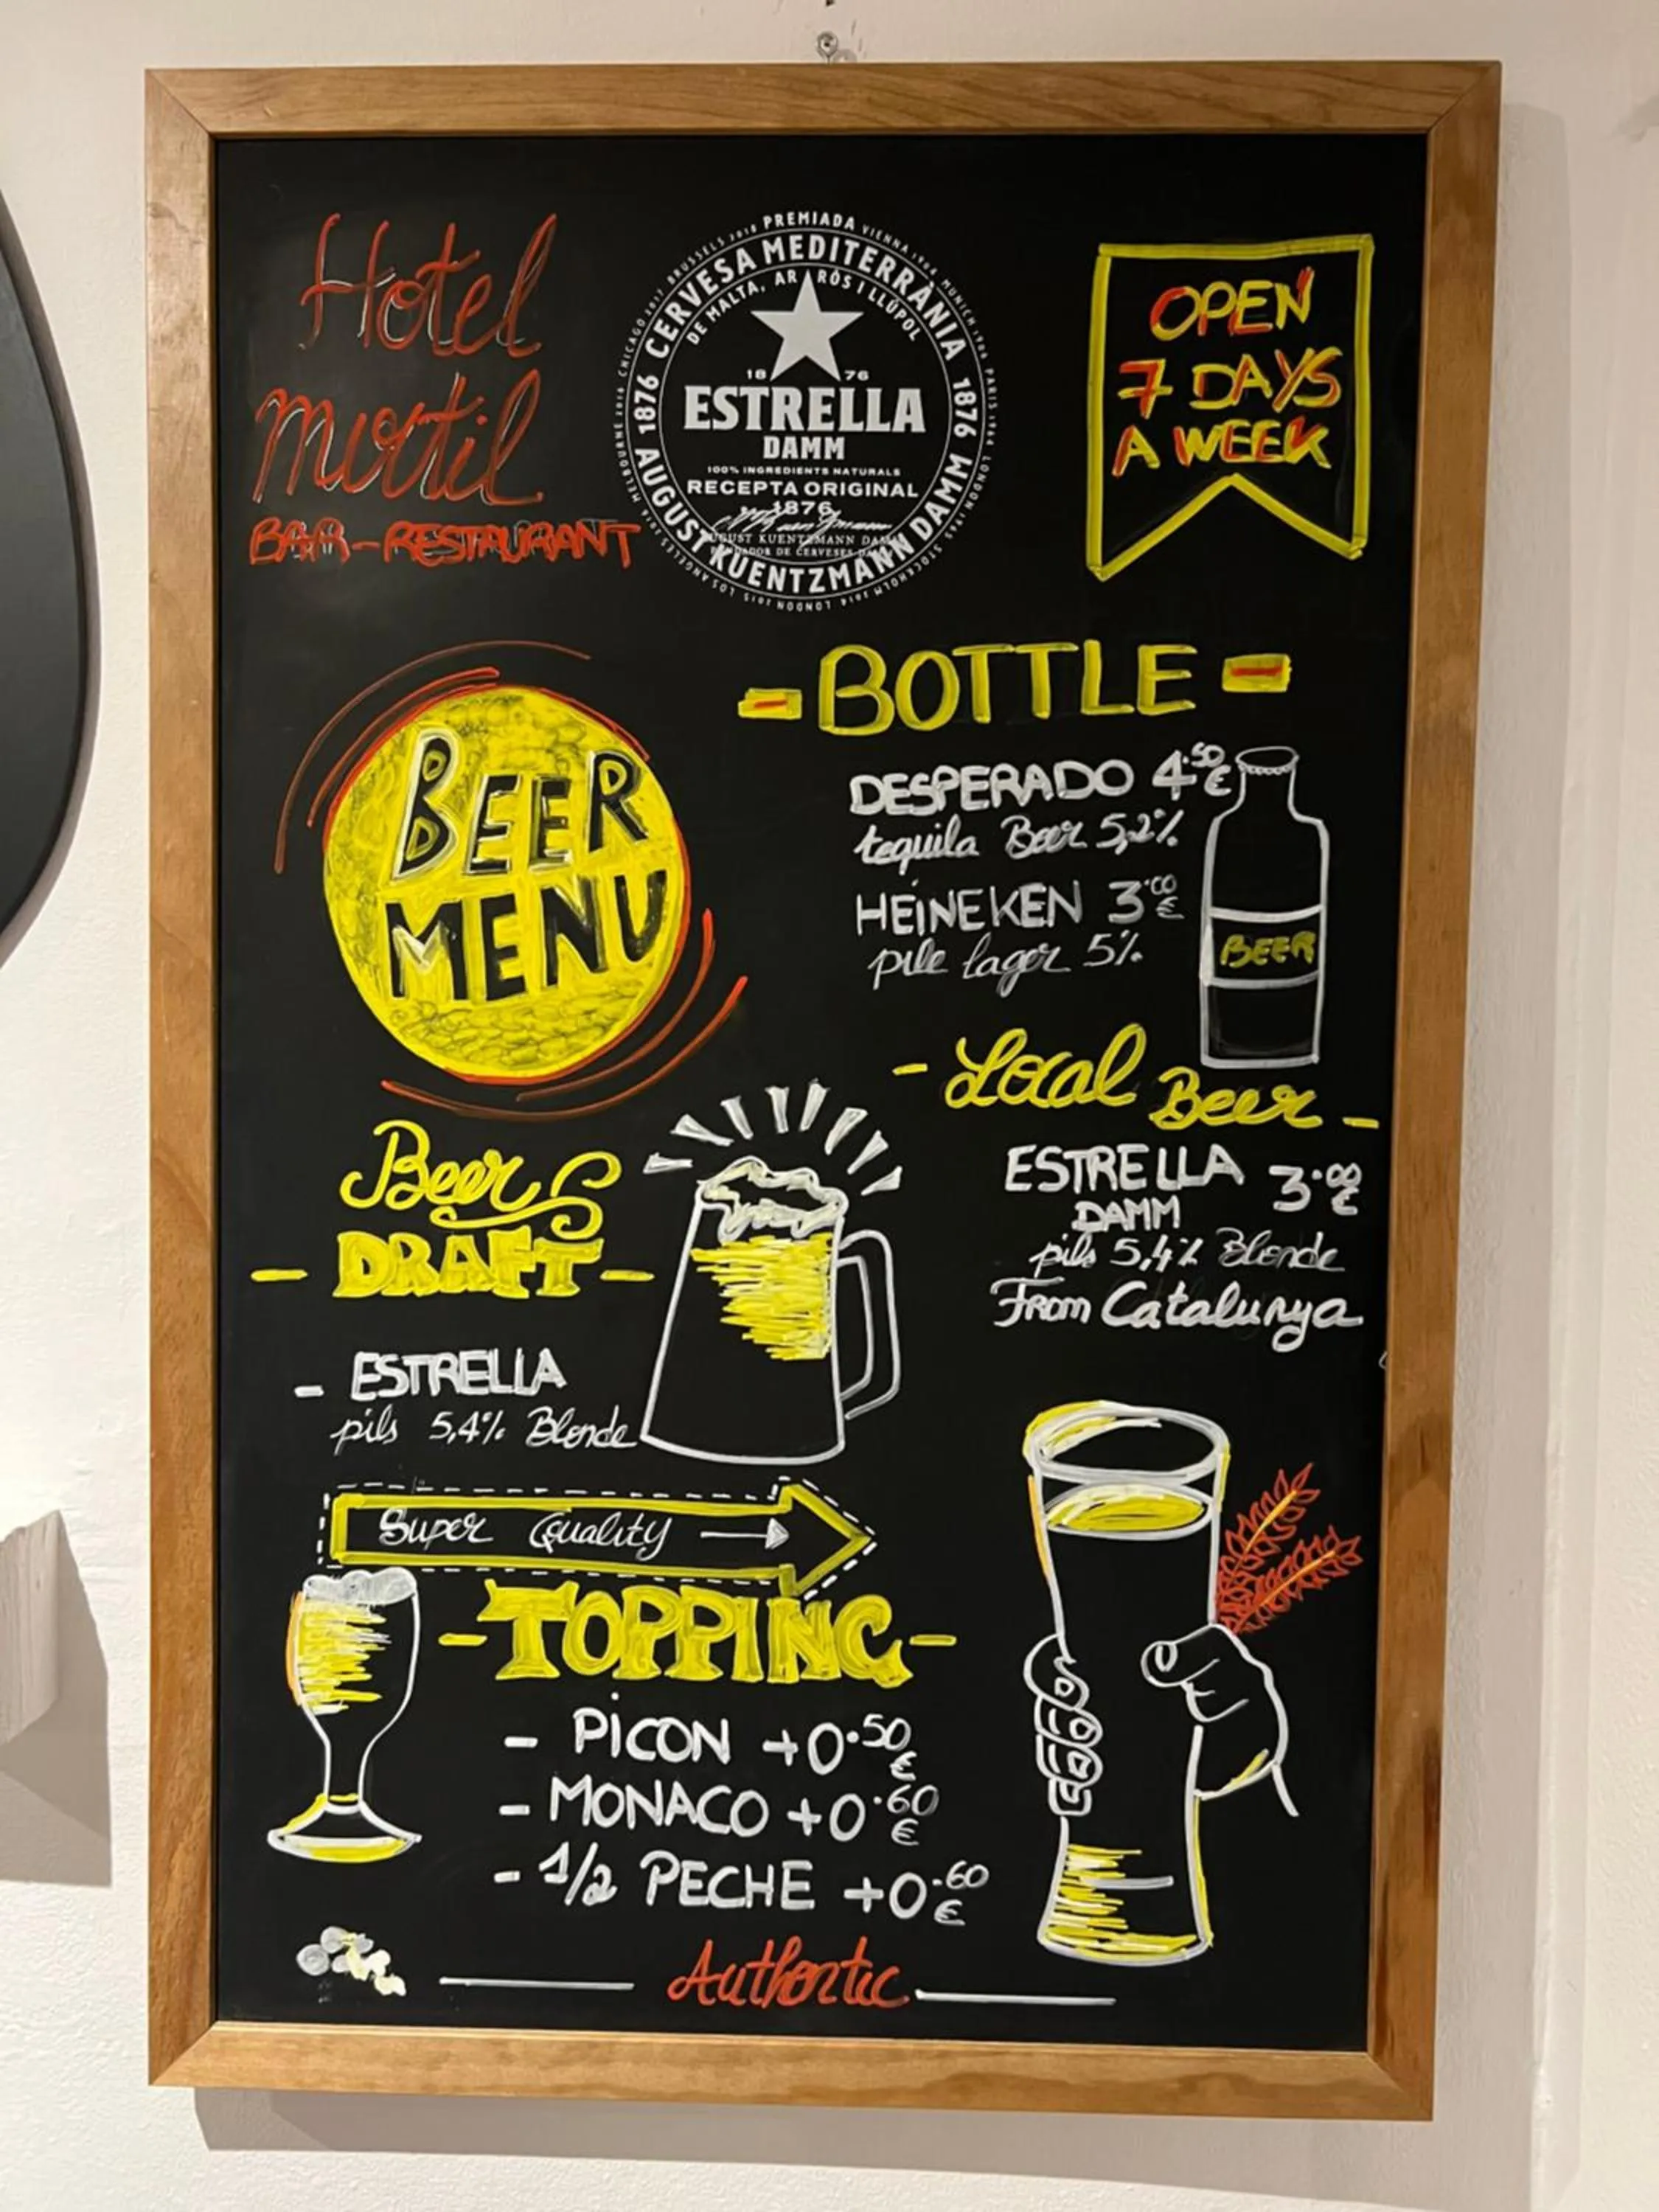 Hotel
mortil
BAR-RESTAURANT
PREMIADA
CERVESA MEDITERRÀNIA
DE MALTA, ARRÒS I LLÚPOL
1876
1876
18 76
ESTRELLA
DAMM
100% INGREDIENTS NATURALS
RECEPTA ORIGINAL
1876
AUGUST KUENTZMANN DAMM
OPEN
7 DAYS
A WEEK
BEER
MENU
- BOTTLE -
DESPERADO 4.50€
tequila Beer 5,2%
HEINEKEN 3.00€
pile lager 5%
BEER
- Local Beer -
ESTRELLA 3.00€
DAMM
pils 5,4% Blonde
From Catalunya
Beer
- DRAFT -
- ESTRELLA
pils 5,4% Blonde
Super Quality
- TOPPING -
- PICON +0.50€
- MONACO +0.60€
- 1/2 PECHE +0.60€
Authentic